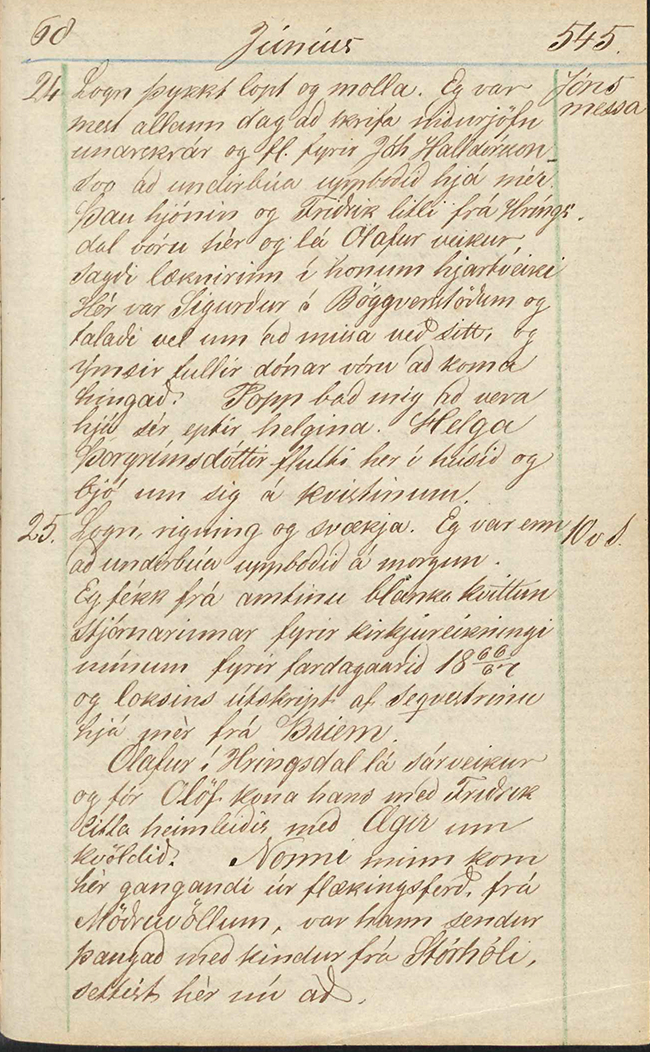 68 Júníus 545.
24 Logn þykkt lopt og molla. Eg var Jóns
mest allann dag að skrifa niðurjöfn messa
unarskrár og fl. fyrir Jóh Halldórsson
svo að undirbúa uppboðið hjá mér.
Þau hjónin og Friðrik litli frá Hríngs-
dal vóru hér og lá Olafur veikur,
sagði læknirinn í honum hjartveiki
Hér var Sigurður á Böggverstöðum og
talaði vel um að missa veð sitt, og
ýmsir fullir dónar vóru að koma
hingað. Popp bað mig að vera
hjá sér eptir helgina. Helga
Þorgrímsdóttir flutti her í húsið og
bjó um sig á kvistinum.
25. Logn, rigning og svækja. Eg var enn 10 v s.
að undirbúa uppboðið á morgun.
Eg fékk frá amtinu blanka kvittun
stjórnarinnar fyrir kirkjureikningi
mínum fyrir fardagaárið 18 66/67
og loksins útskript af Seqvestrinu
hjá mér frá Briem.
Olafur í Hringsdal lá sárveikur
og fór Olöf kona hans með Friðrik
litla heimleiðis með Ægir um
kvöldið. Nonni minn kom
hér gangandi úr flækingsferð, frá
Möðruvöllum, var hann sendur
þangað með kindur frá Stórhóli,
settist hér nú að.